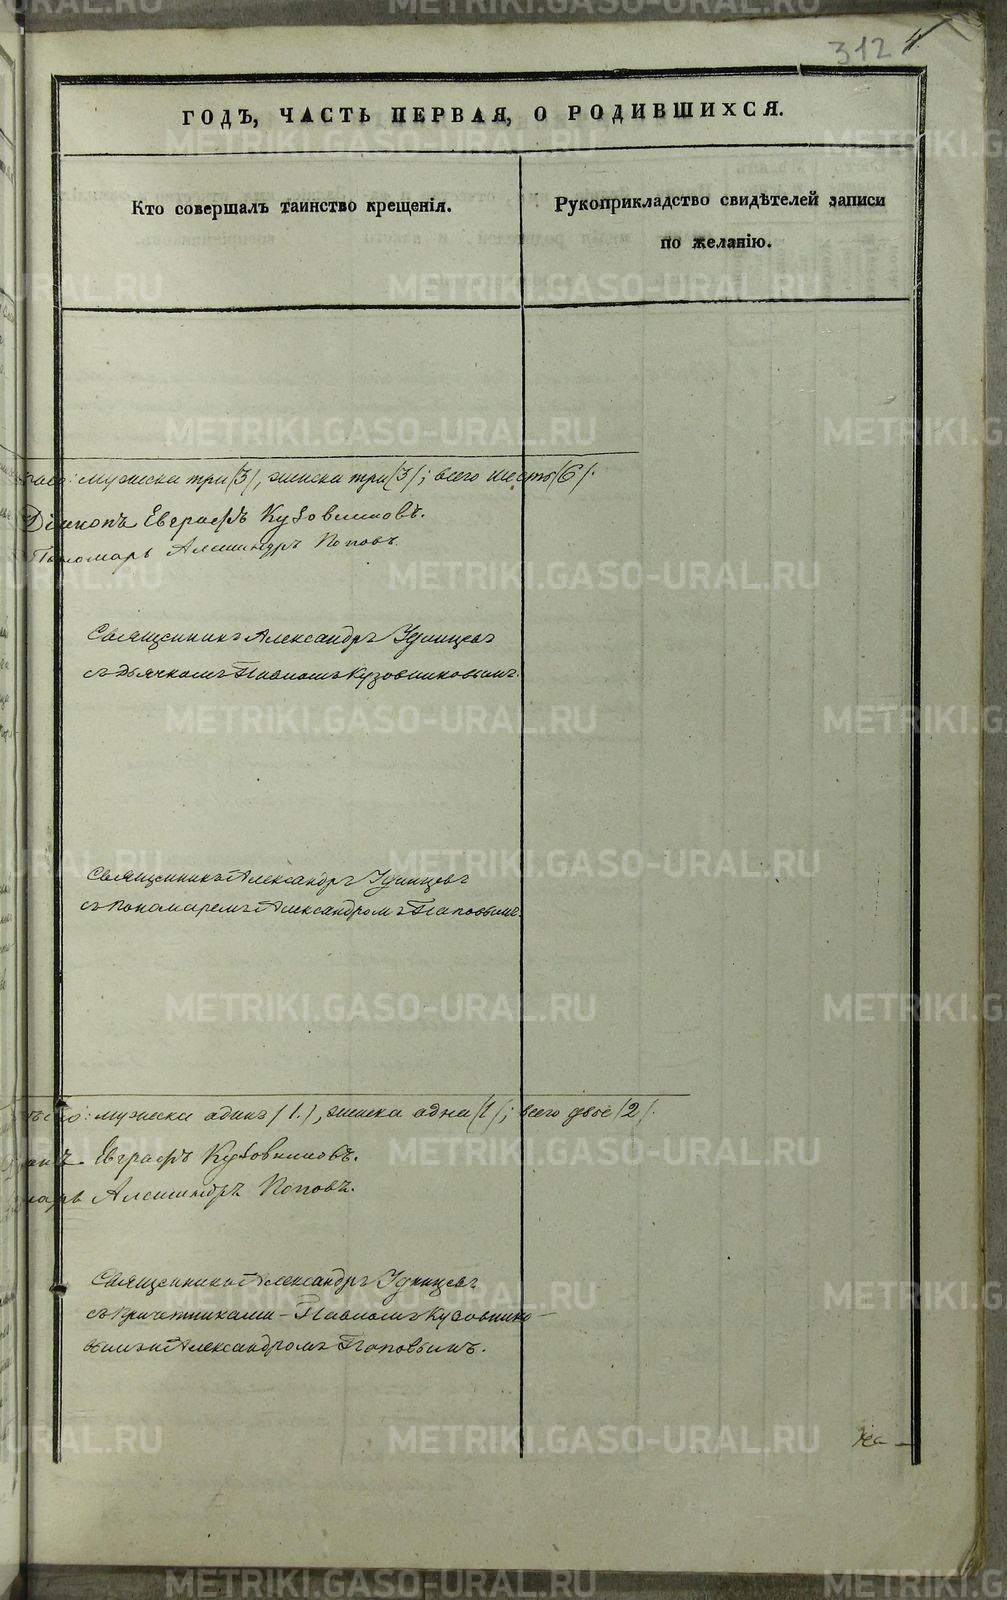 312 4
ГОДЪ, ЧАСТЬ ПЕРВАЯ, О РОДИВШИХСЯ.
Кто совершалъ таинство крещенія.
Рукоприкладство свидѣтелей записи
по желанію.
мужеска три (3), женска три (3); всего шесть (6).
Діаконъ Евграфъ Кузовниковъ.
Пономарь Александръ Поповъ.
Священникъ Александръ Удинцевъ
съ дьячкомъ Павломъ Кузовниковымъ.
Священникъ Александръ Удинцевъ
съ пономаремъ Александромъ Поповымъ.
мужеска одинъ (1.), женска одна (1); всего двое (2).
Евграфъ Кузовниковъ.
Александръ Поповъ.
Священникъ Александръ Удинцевъ
съ причетниками – Павломъ Кузовнико-
вымъ и Александромъ Поповымъ.
METRIKI.GASO-URAL.RU